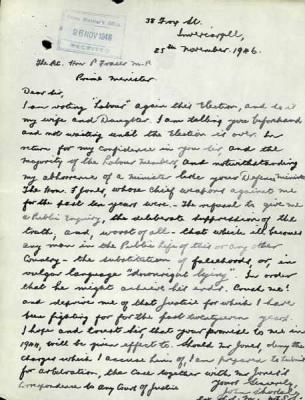 38 Fox St.
Invercargill,
25th November. 1946.
Prime Minister's Office
26 NOV 1946
RECEIVED
The Rt. Hon P Fraser M.P.
Prime Minister
Dear Sir,
I am voting "Labour" again this Election, and so is
my wife and Daughter. I am telling you beforehand
and not waiting until the Election is over. In
return for my confidence in you Sir, and the
majority of the Labour members, and notwithstanding
my abhorence of a Minister like your Defence Minister
The Hon. F Jones, whose chief weapons against me
for the past ten years were. The refusal to give me
a Public Enquiry, the deliberate suppression of the
truth, and, worst of all - that which ill becomes
any man in the Public life of this or any other
Country - the substitution of falsehoods, or, in
vulgar language "downright lying". In order
that he might achieve his ends. Crush me!
and deprive me of that Justice for which I have
been fighting for for the past twentyseven years.
I hope and trust Sir, that your promise to me in
1944, will be given effect to. Should Mr Jones, deny the
charges which I accuse him of, I am prepared to submit
for arbitration, the case together with Mr Jones's
correspondence to any Court of Justice
Yours Sincerely,